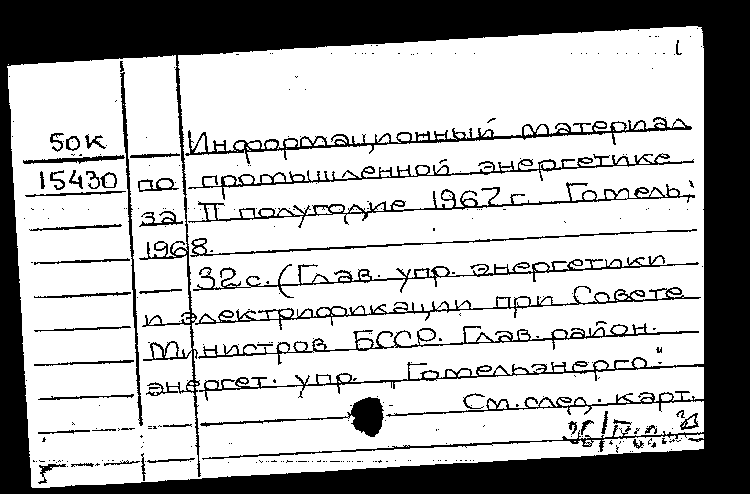 1
50К Информационный материал
15430 по промышленной энергетике
за II полугодие 1967 г. Гомель,
1968.
32 с. (Глав. упр. энергетики
и электрификации при Совете
Министров БССР. Глав. район.
энергет. упр. „Гомельэнерго".
См. след. карт.